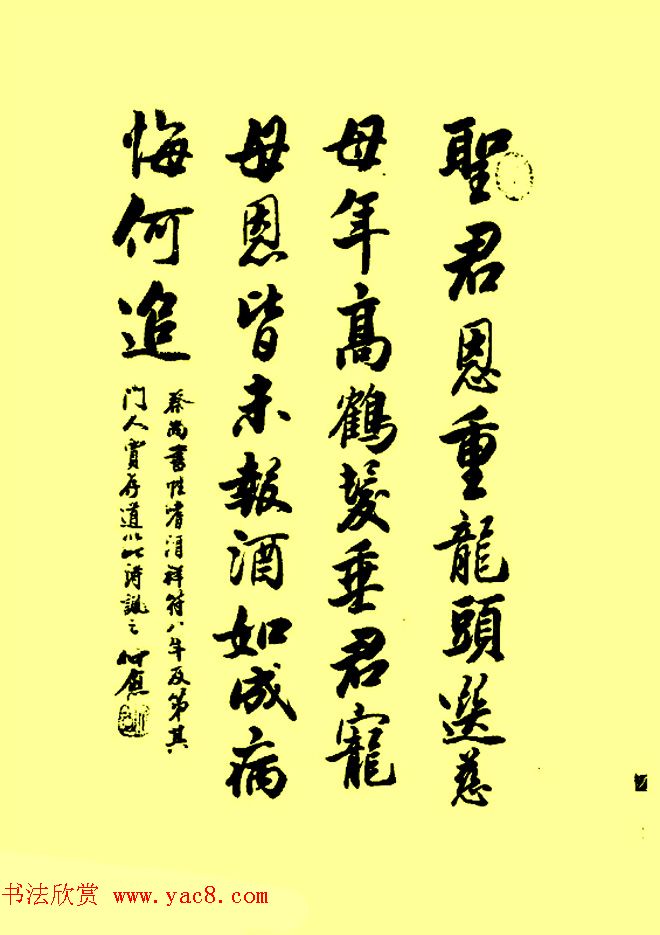 聖君恩重龍頭選慈
母年高鶴髮垂君寵
母恩皆未報酒如成病
悔何追
蔡尚書性嗜酒祥符八年及第其
門人賈存道以此詩諷之 何應
书法欣赏 www.yac8.com